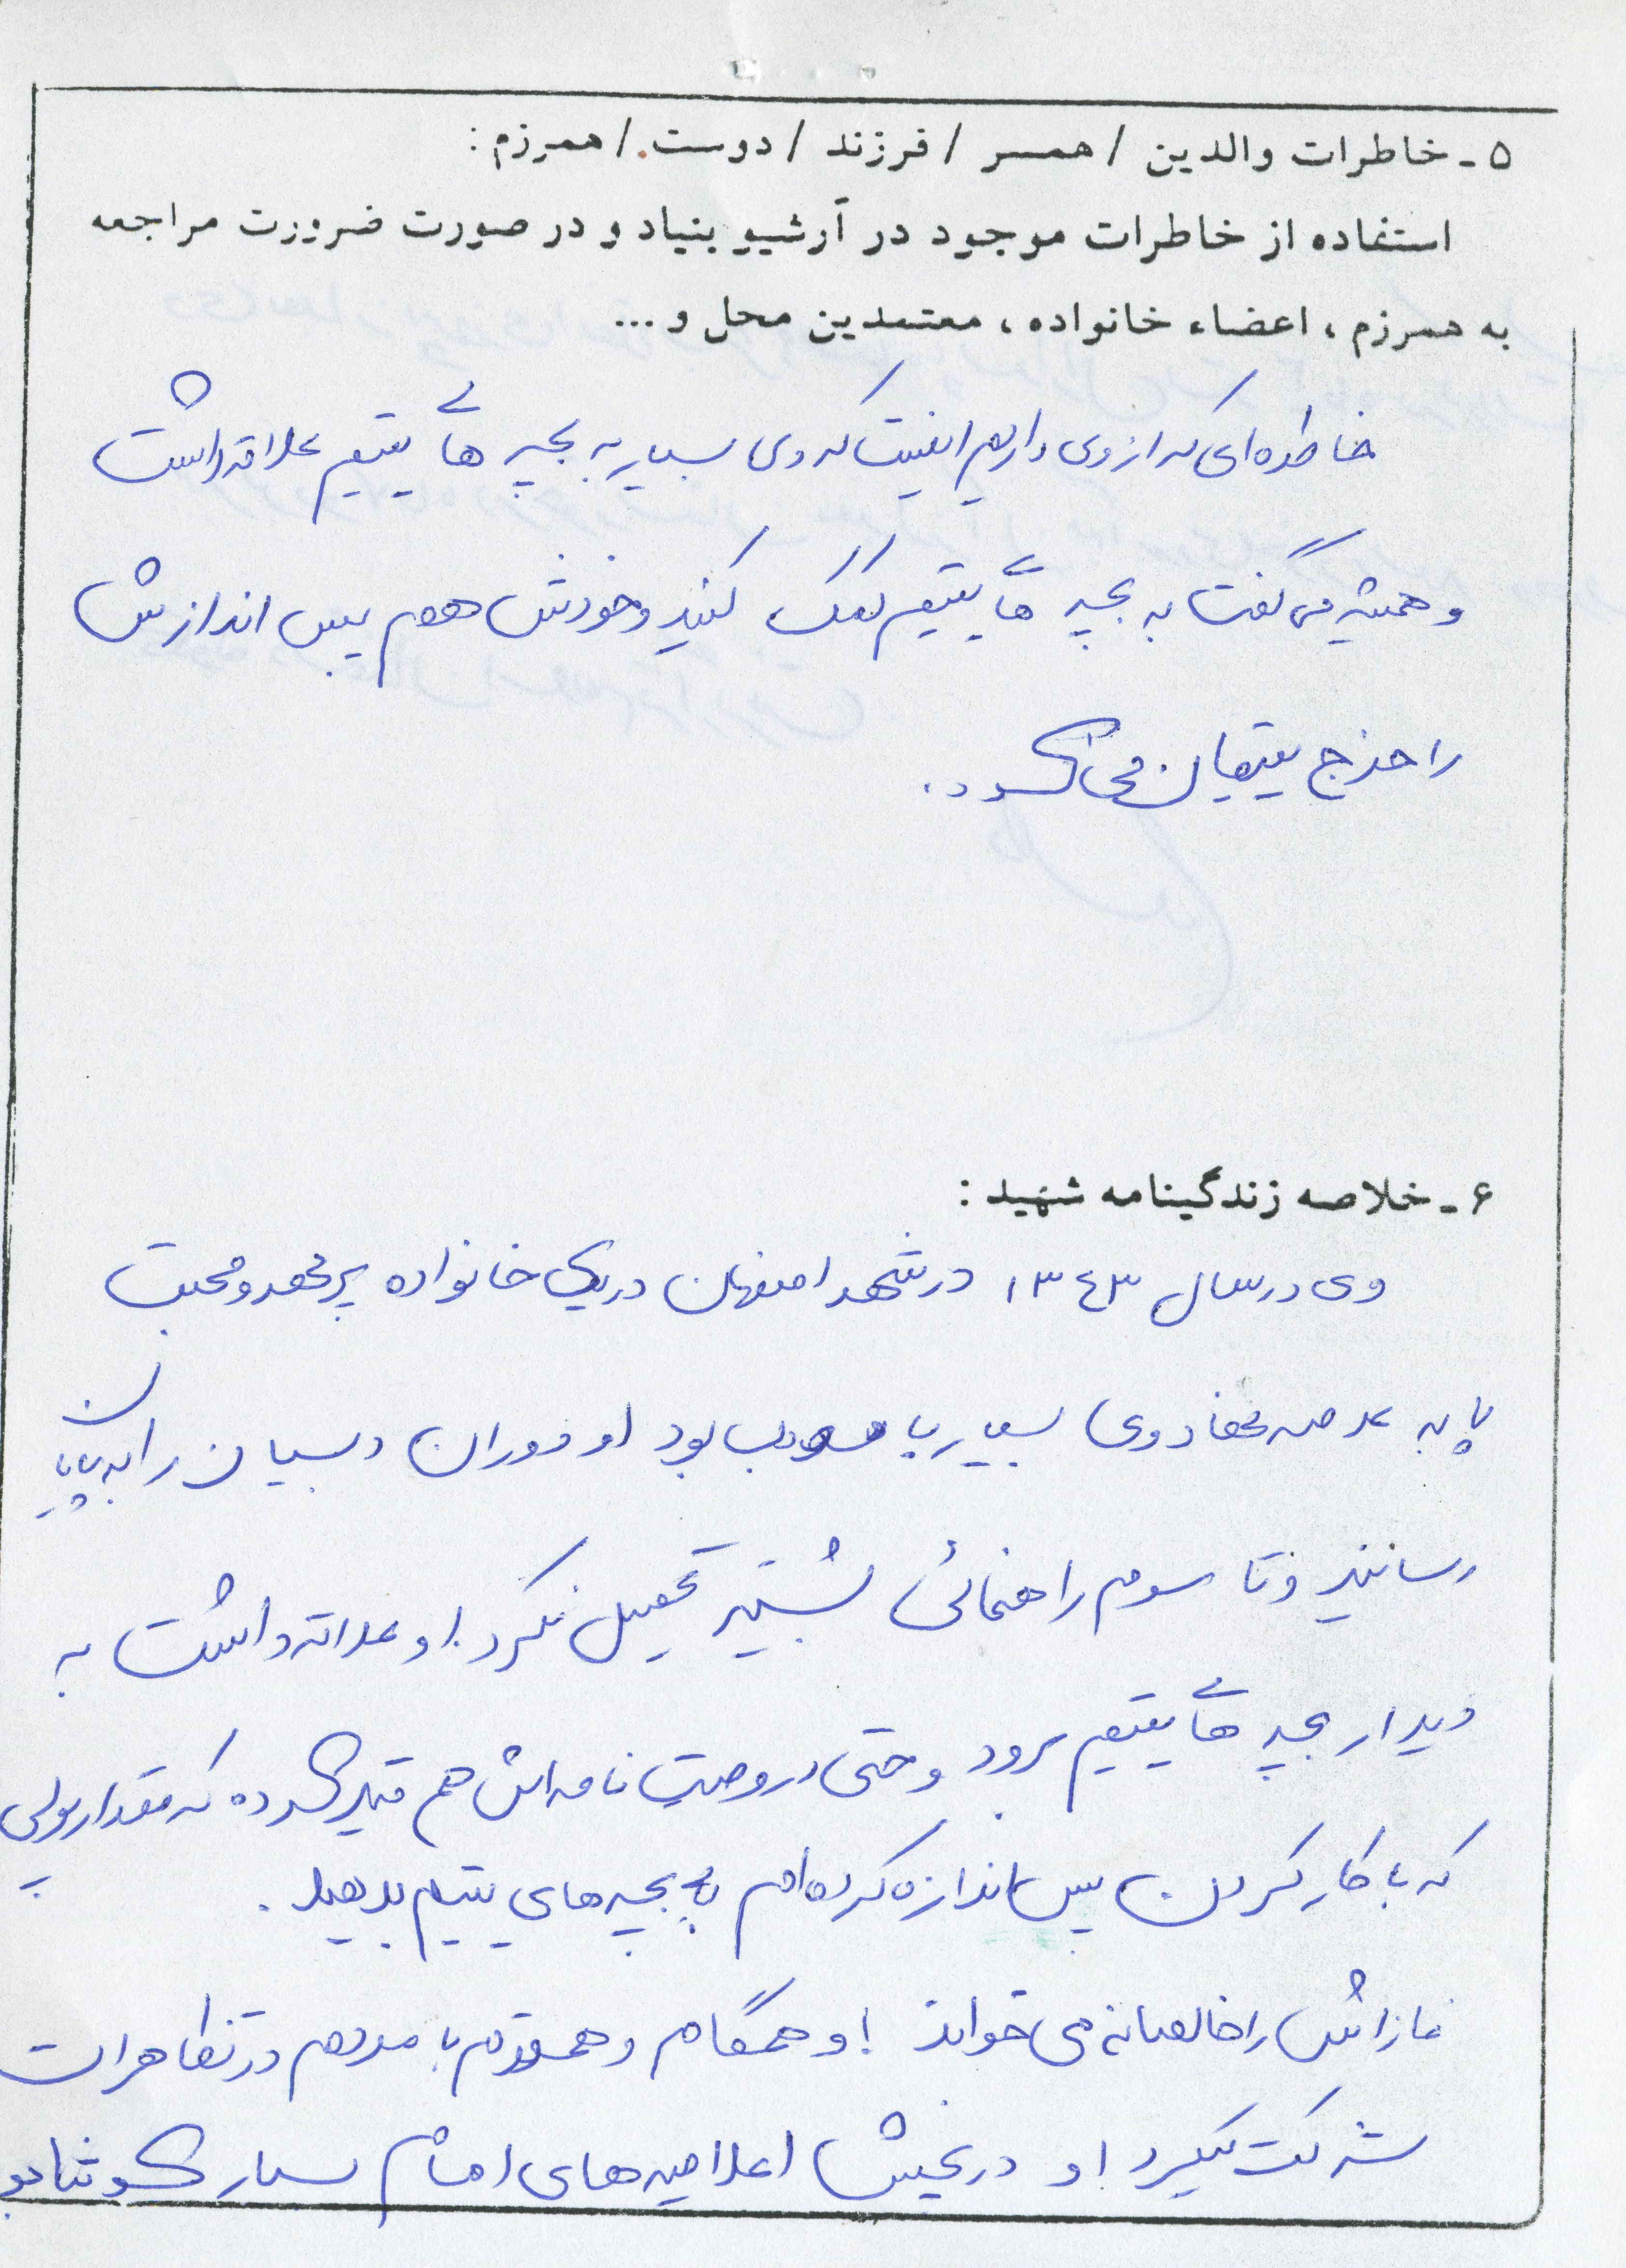 ۵ - خاطرات والدین / همسر / فرزند / دوست / همرزم :
استفاده از خاطرات موجود در آرشیو بنیاد و در صورت ضرورت مراجعه
به همرزم ، اعضاء خانواده ، معتمدین محل و ...
خاطره‌ای که از وی داریم اینست که وی بسیار به بچه هائے یتیم علاقه داشت
و همیشه می گفت به بچه هائے یتیم کمک کنید و خودش هم پس اندازش
را خرج یتیمان می کرد .
۶ - خلاصه زندگینامه شهید :
وی در سال ۱۳٤۳ در شهر اصفهان در یک خانواده پر مهر و محبت
پا به عرصه نهاد وی بسیار با بود او دوران دبستان را به پایان
رسانید و تا سوم راهنمائی بیشتر تحصیل نکرد او علاقه داشت به
دیدار بچه هائے یتیم برود و حتی در وصیت نامه اش هم قید کرده که مقدار پولی
که با کار کردن پس اندازه کرده ام به بچه های یتیم بدهید .
نمازاش را خالصانه می خواند او همگام و همقدم با مردم در تظاهرات
شرکت میکرد او در پخش اعلامیه های امام بسیار کوشا بو